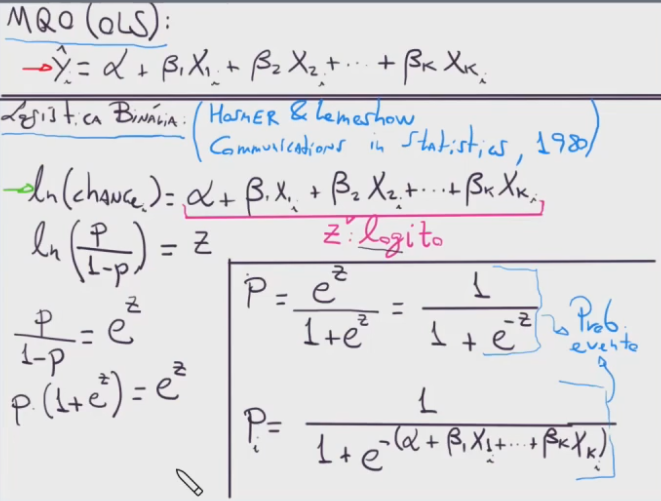 MQO (OLS):
Ŷᵢ = α + β₁X₁ᵢ + β₂X₂ᵢ + ... + βₖXₖᵢ
Logística Binária: (Hosmer & Lemeshow
Communications in Statistics, 1980)
ln(chanceᵢ) = α + β₁X₁ᵢ + β₂X₂ᵢ + ... + βₖXₖᵢ
Z: logito
ln(p/(1-p)) = Z
p/(1-p) = e^Z
p.(1+e^Z) = e^Z
P = e^Z/(1+e^Z) = 1/(1+e^-Z)
Prob.
evento
Pᵢ = 1/(1+e^-(α + β₁X₁ᵢ + ... + βₖXₖᵢ))